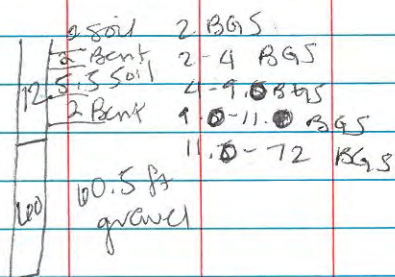 2 Soil 2 BGS
2 Bent 2-4 BGS
12 5.5 Soil 4-9.0 BGS
2 Bent 9.0-11.0 BGS
11.0-72 BGS
60 60.5 ft
gravel